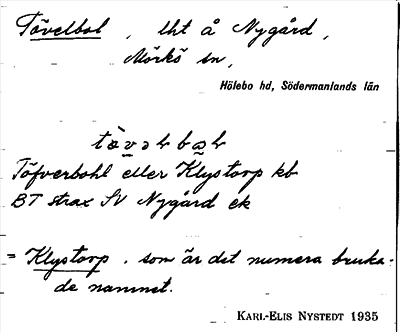 Tövelbol, lht å Nygård,
Mörkö sn,
Hölebo hd, Södermanlands län
Töfverbohl eller Klystorp kb
BT strax SV Nygård ek
= Klystorp. som är det numera bruka-
de namnet.
KARL-ELIS NYSTEDT 1935